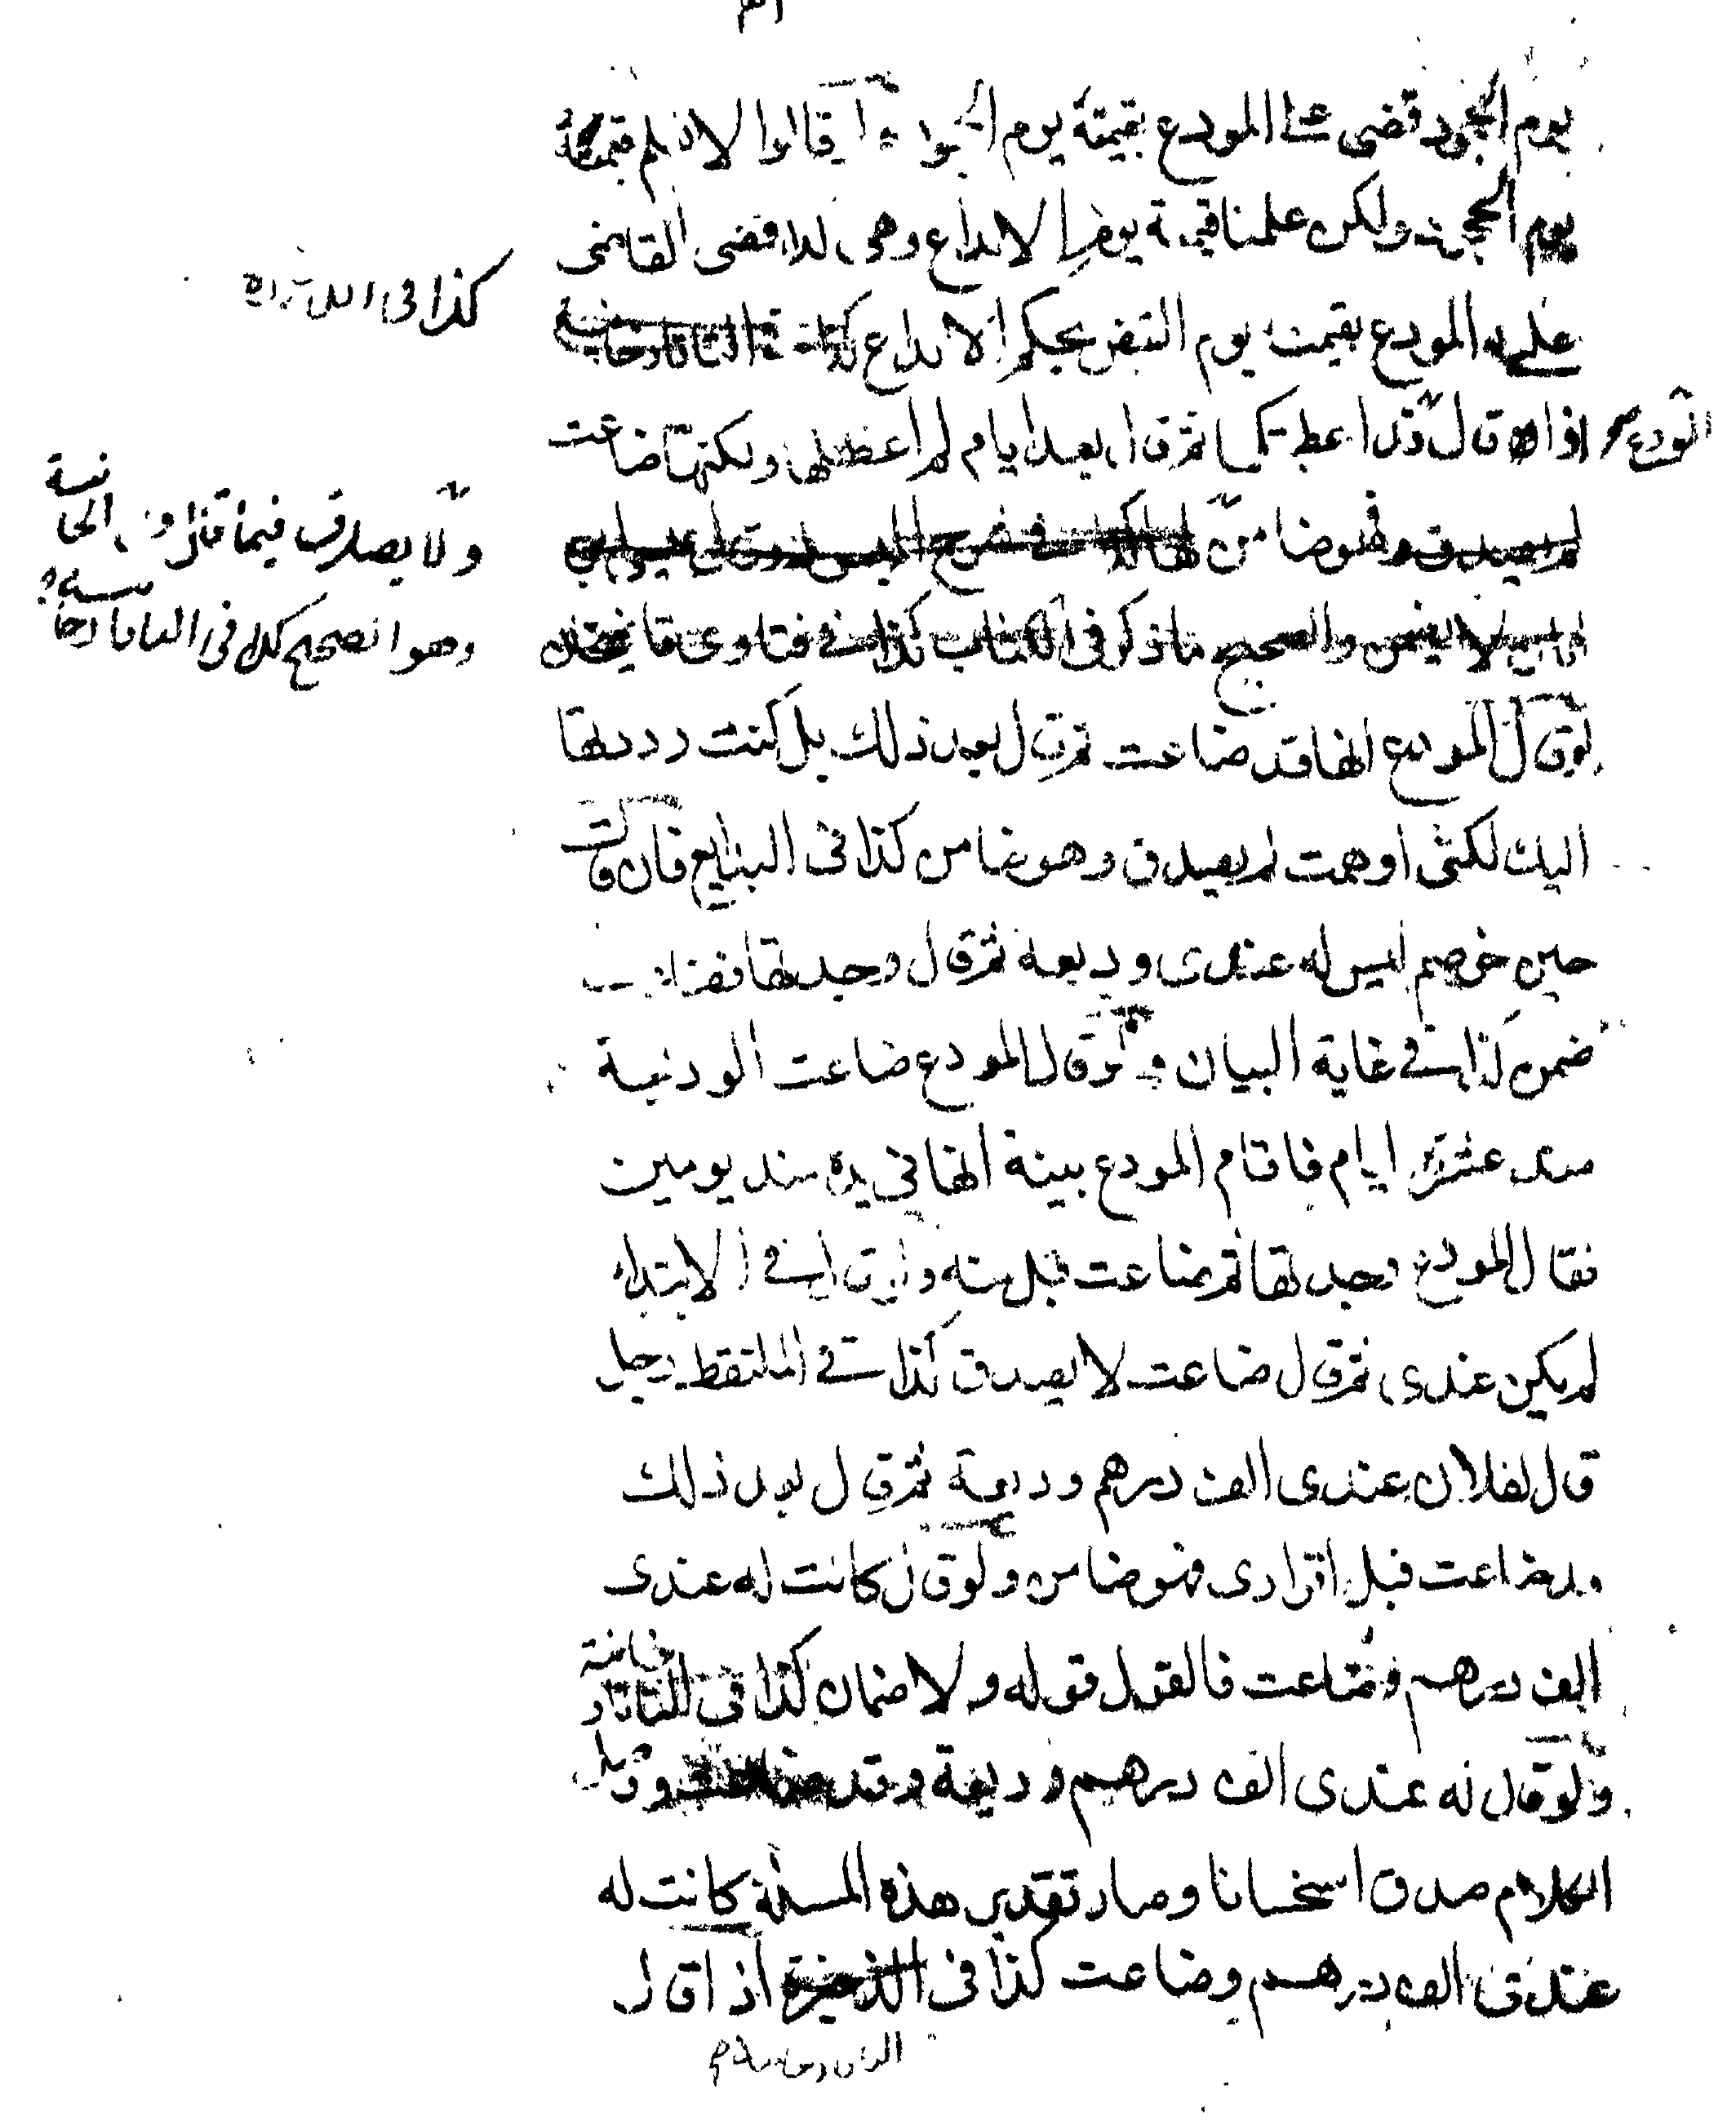 يوم الجحود قضى على المودع بقيمته يوم الجحود قالوا لا نعلم قيمتها
يوم الجحود ولكن علمنا قيمة يوم الايداع وهى كذا قضى القاضى
على المودع بقيمته يوم القبض بحكم الايداع كذا فى التاتارخانية
كذا فى
المودع اذا قال قد اعطيتكها ثم قال بعد ايام لم اعطكها ولكنها ضاعت
لم يصدق وهو ضامن لها كذا فى
ولا يصدق فيما قال الخانية
لا يضمن والصحيح ما ذكر فى الكتاب كذا فى فتاوى قاضيخان
وهو الصحيح كذا فى التاتارخانية
لو قال المودع انها قد ضاعت ثم قال بعد ذلك بل كنت رددتها
اليك لكنى اوهمت لم يصدق وهو ضامن كذا فى البدايع فان قال
حين خوصم ليس له عندى وديعة ثم قال وجدتها فضاعت
ضمن كذا فى غاية البيان ولو قال المودع ضاعت الوديعة
منذ عشرة ايام فاقام المودع بينة انها فى يده منذ يومين
فقال المودع وجدتها ثم ضاعت قبل منه ولو قال فى الابتداء
لم يكن عندى ثم قال ضاعت لا يصدق كذا فى الملتقط رجل
قال لفلان عندى الف درهم وديعة ثم قال بعد ذلك
قد ضاعت قبل اقرارى فهو ضامن ولو قال كانت له عندى
الف درهم وضاعت فالقول قوله ولا ضمان كذا فى التاتارخانية
ولو قال له عندى الف درهم وديعة وقد ضاعت ووصل
الكلام صدق استحسانا وصار تقدير هذه المسئلة كانت له
عندى الف درهم وضاعت كذا فى الذخيرة اذا قال